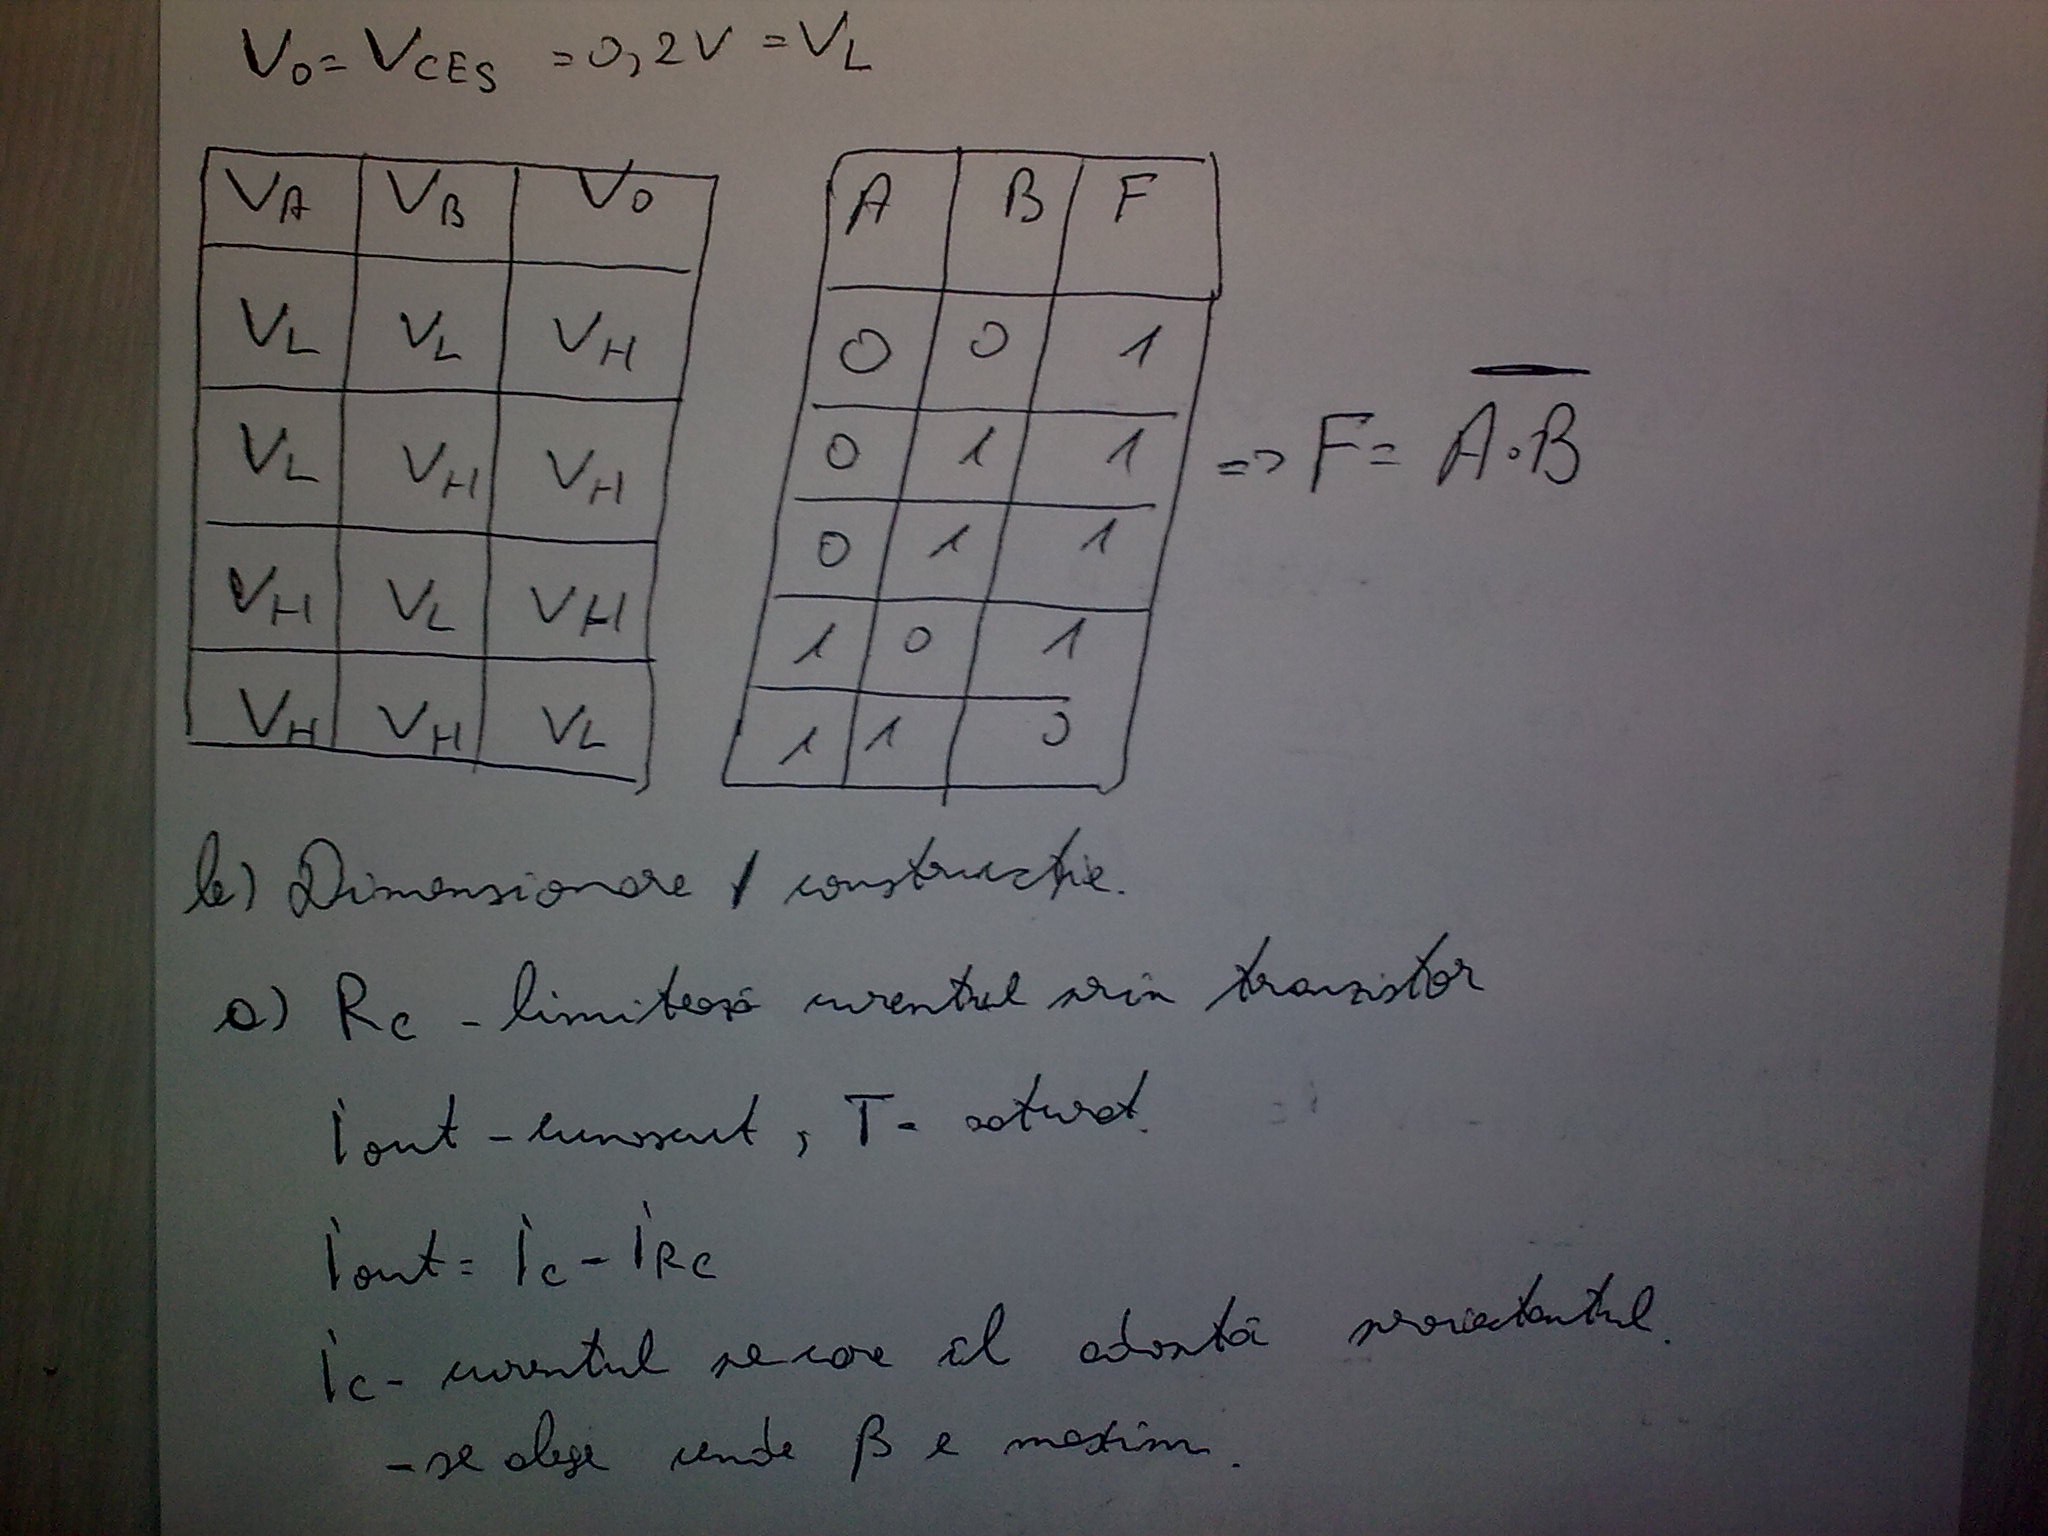 V_O = V_CES = 0,2V = V_L
V_A V_B V_O
V_L V_L V_H
V_L V_H V_H
V_H V_L V_H
V_H V_H V_L
A B F
0 0 1
0 1 1
0 1 1
1 0 1
1 1 0
=> F = \overline{A·B}
b) Dimensionare / construcție.
a) R_C - limitează curentul prin tranzistor
i_out - cunoscut, T - saturat.
i_out = i_C - i_RC
i_C - curentul pe care îl adoptă proiectantul.
- se alege unde β e maxim.